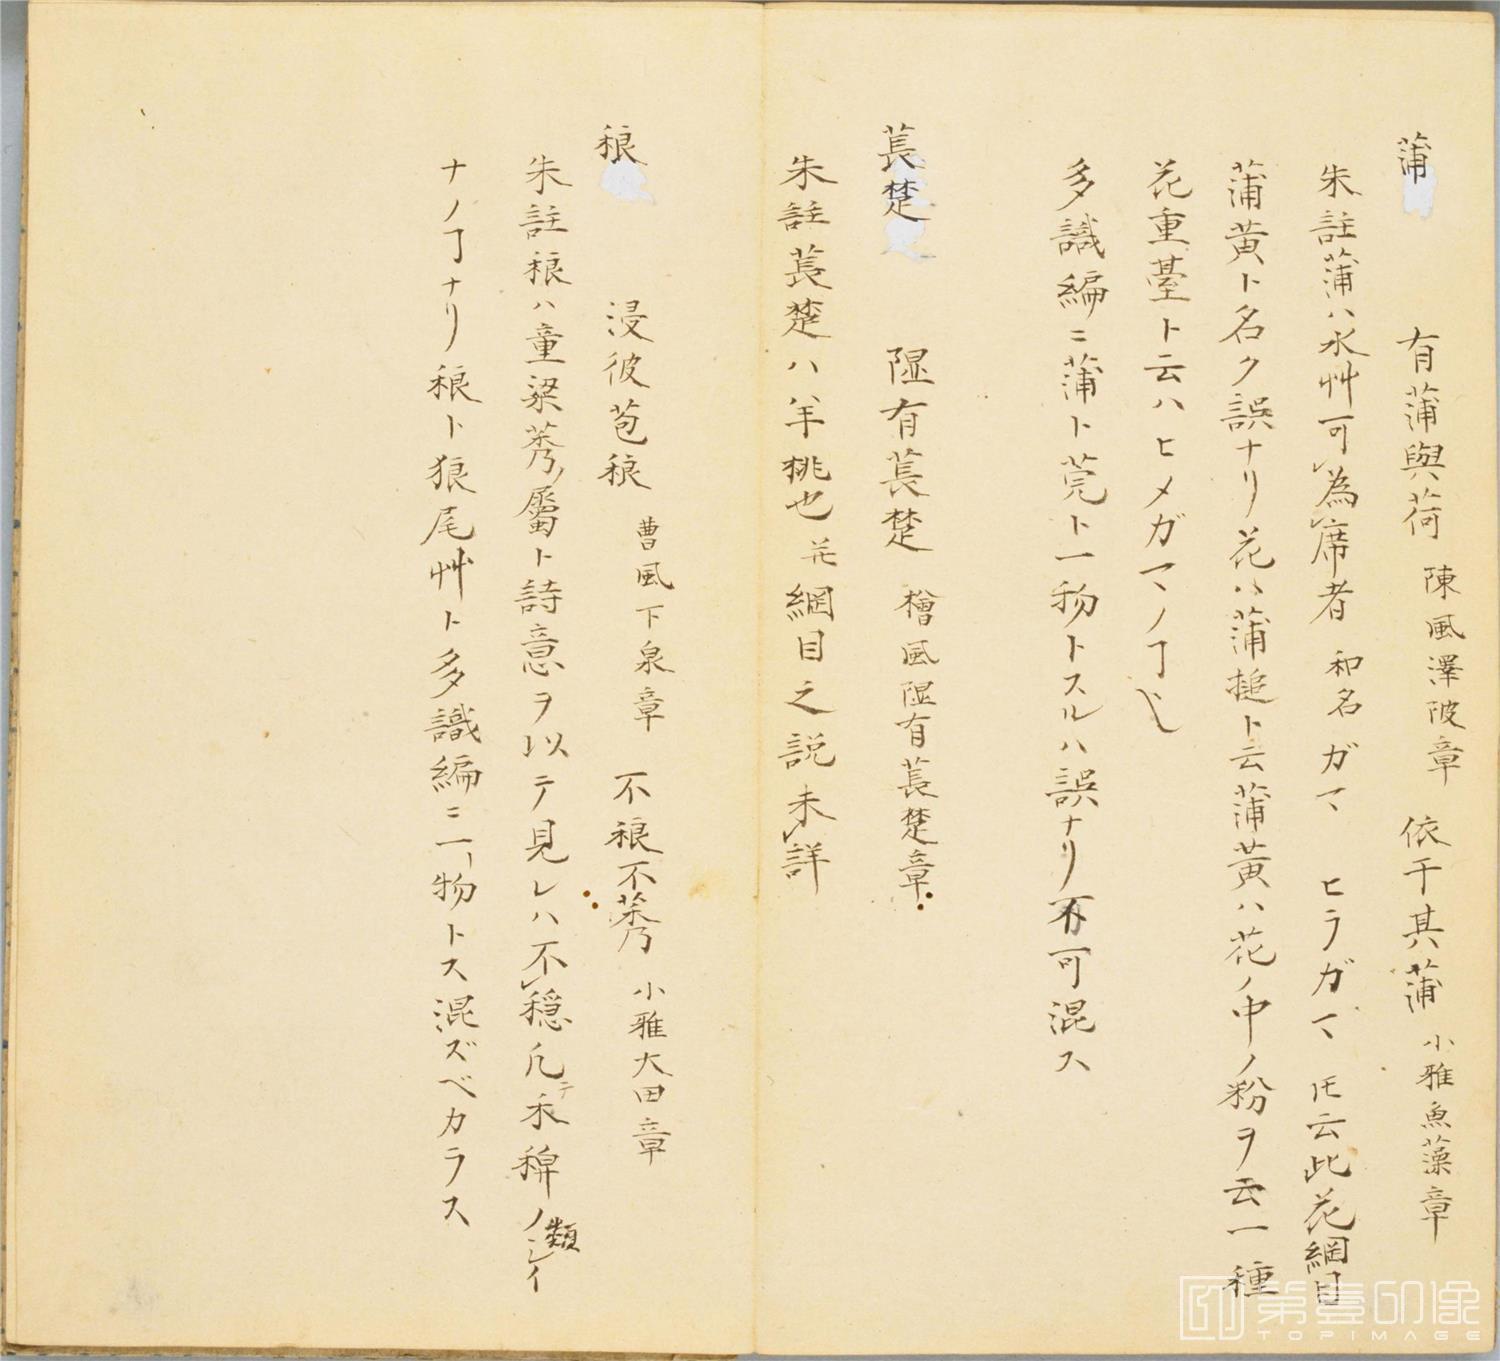 蒲　有蒲與荷　陳風澤陂章　依于其蒲　小雅魚藻章
朱註蒲ハ水艸可為席者　和名ガマ　ヒラガマ　𪜈云此花綱目
蒲黄ト名ク誤ナリ花ハ蒲槌ト云蒲黄ハ花ノ中ノ粉ヲ云一種
花重臺ト云ハヒメガマノヿ
多識編ニ蒲ト莞ト一物トスルハ誤ナリ不可混ス
萇楚　隰有萇楚　檜風隰有萇楚章
朱註萇楚ハ羊桃也　花綱目之説未詳
稂　浸彼苞稂　曹風下泉章　不稂不莠　小雅大田章
朱註稂ハ童粱莠ノ屬ト詩意ヲ以テ見レハ不穏凡テ禾稗ノ類
ナノヿナリ稂ト狼尾艸ト多識編ニ一物トス混ズベカラス
第壹印像
TOPIMAGE